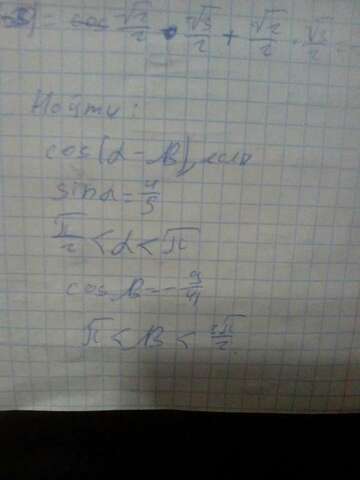 = cos √2/2 · √3/2 + √2/2 · √3/2
Найти:
cos(α - β), если
sin α = 4/5
π/2 < α < π
cos β = - 9/41
π < β <